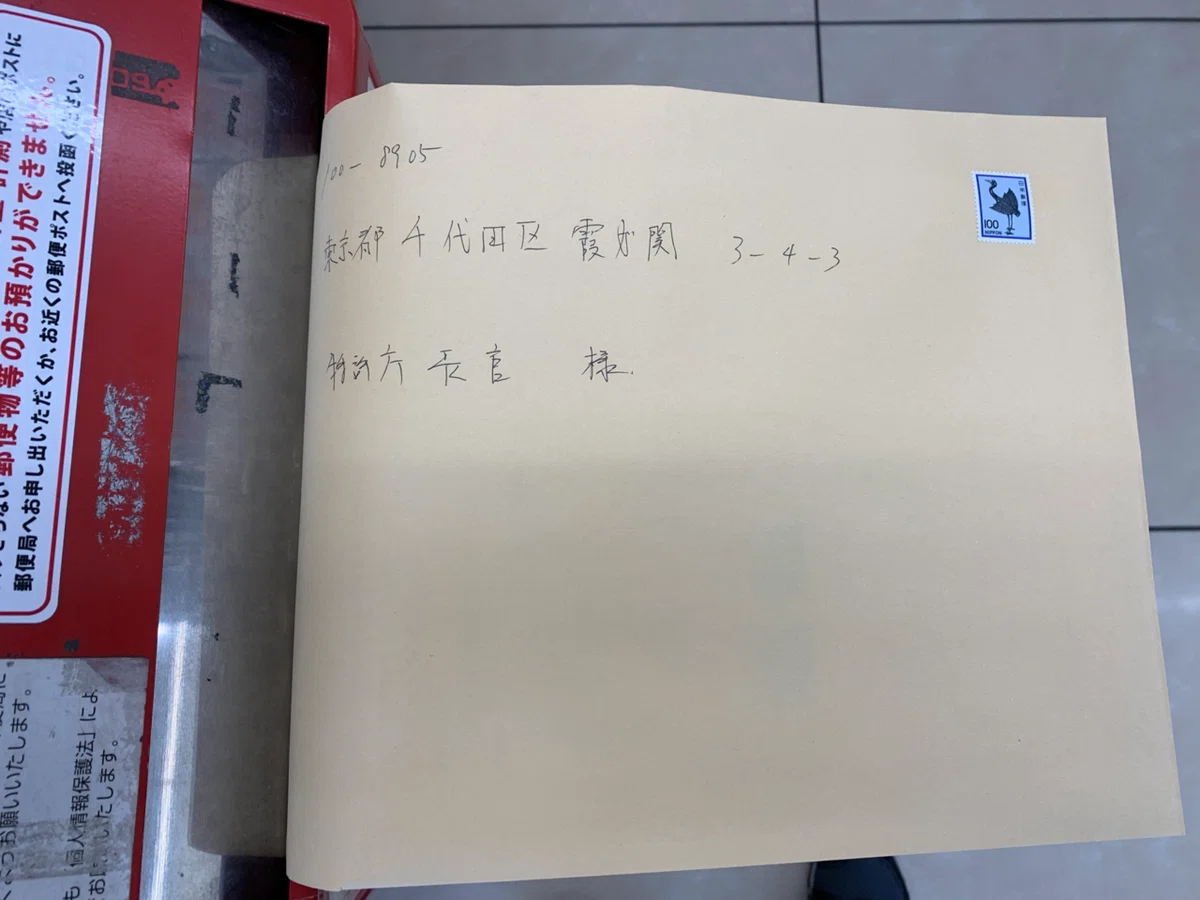 100-8905
東京都 千代田区 霞が関 3-4-3
特許庁 長官 様.
日本郵便
100
NIPPON
郵便物等のお預かりができません。
郵便局へお申し出いただくか、お近くの郵便ポストへ投函ください。
お願いいたします。
個人情報保護法」によ
いたします。